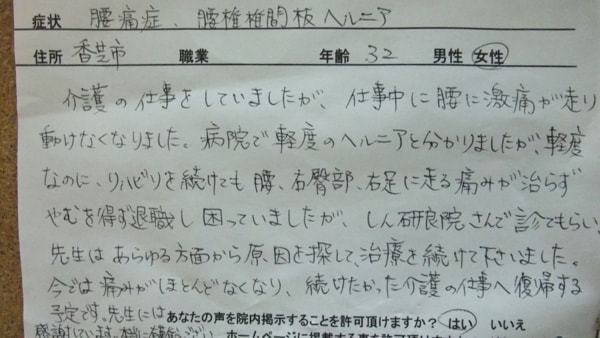 症状 腰痛症、腰椎椎間板ヘルニア
住所 香芝市 職業 年齢 32 男性 女性
介護の仕事をしていましたが、仕事中に腰に激痛が走り
動けなくなりました。病院で軽度のヘルニアと分かりましたが、軽度
なのに、リハビリを続けても腰、右臀部、右足に走る痛みが治らず
やむを得ず退職し困っていましたが、しん研良院さんで診てもらい、
先生はあらゆる方面から原因を探して、治療を続けて下さいました。
今では痛みがほとんどなくなり、続けたかった介護の仕事へ復帰する
予定です。先生には あなたの声を院内掲示することを許可頂けますか? はい いいえ
感謝しています。本当に ホームページに掲載する事を許可頂けますか